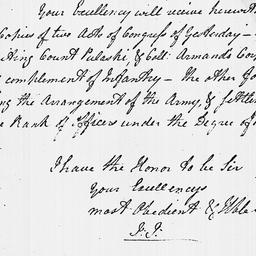 Your Excellency will receive herewith
Copies of two Acts of Congress of Yesterday —
iting Count Pulaski, & Coll. Armands Cor
complement of Infantry — The other fo
ng the Arrangement of the Army, & settlin
e Rank of Officers under the Degree of
I have the Honor to be Sir
Your Excellencys
most Obedient & Hble
J. J.